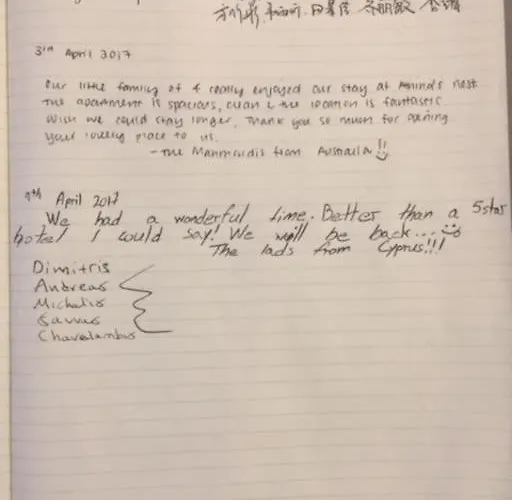 3rd April 3017
Our little family of 4 really enjoyed our stay at nest
The apartment is spacious, clean & the location is fantastic.
Wish we could stay longer. Thank you so much for opening
your lovely place to us.
- The from Australia
9th April 2017
We had a wonderful time. Better than a 5star
hotel I could say! We will be back...
The lads from Cyprus!!!
Dimitris
Andreas
Michalis
Savvas
Charalambos